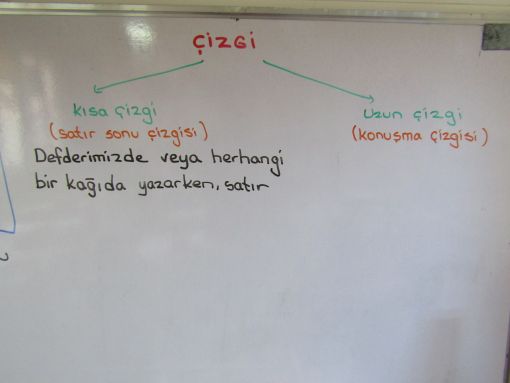 ÇİZGİ
Kısa Çizgi
(satır sonu çizgisi)
Defderimizde veya herhangi
bir kağıda yazarken, satır
Uzun çizgi
(konuşma çizgisi)